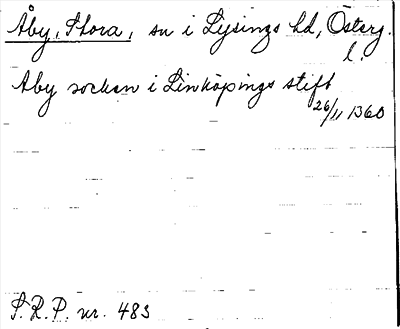 Åby, Stora, sn i Lysings hd, Österg.
l.
Aby socken i Linköpings stift
26/11 1360
S.R.P. nr. 483